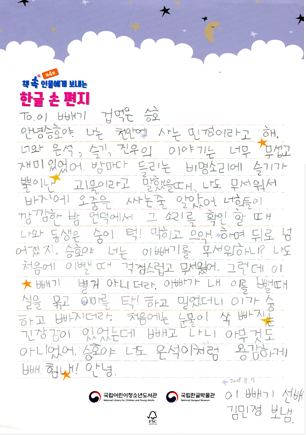 책 속 인물에게 보내는
한글 손 편지
To. 이 빼기 겁먹은 승호
안녕 승호야 나는 천안에 사는 민경이라고 해.
너와 은석, 슬기, 진우의 이야기는 너무 무섭고
재미있었어. 밤마다 들리는 비명소리에 슬기가
뿔이난 괴물이라고 말했을때, 나도 무서워서
바지에 오줌을 싸는줄 알았어 너희들이
깜깜한 밤 언덕에서 그 소리를 확인 할 때
나와 동생은 숨이 턱! 막히고 으악 하며 뒤로 넘
어졌지. 승호야 너는 이빼기를 무서워하니? 나도
처음에 이뺄 때 겁났고 무서웠어. 그런데 이
빼기 별거 아니더라. 아빠가 내 이를 뺄때
실을 묶고 이마를 탁! 하고 밀었더니 이가 숑
하고 빠지더라. 처음에는 눈물이 싹 빠지는
긴장감이 있었는데 빼고 나니 아무것도
아니었어. 승호야 너도 은석이처럼 용감하게
빼 힘내! 안녕.
이 빼기 선배
김민경 보냄.
국립어린이청소년도서관
국립한글박물관
FSC